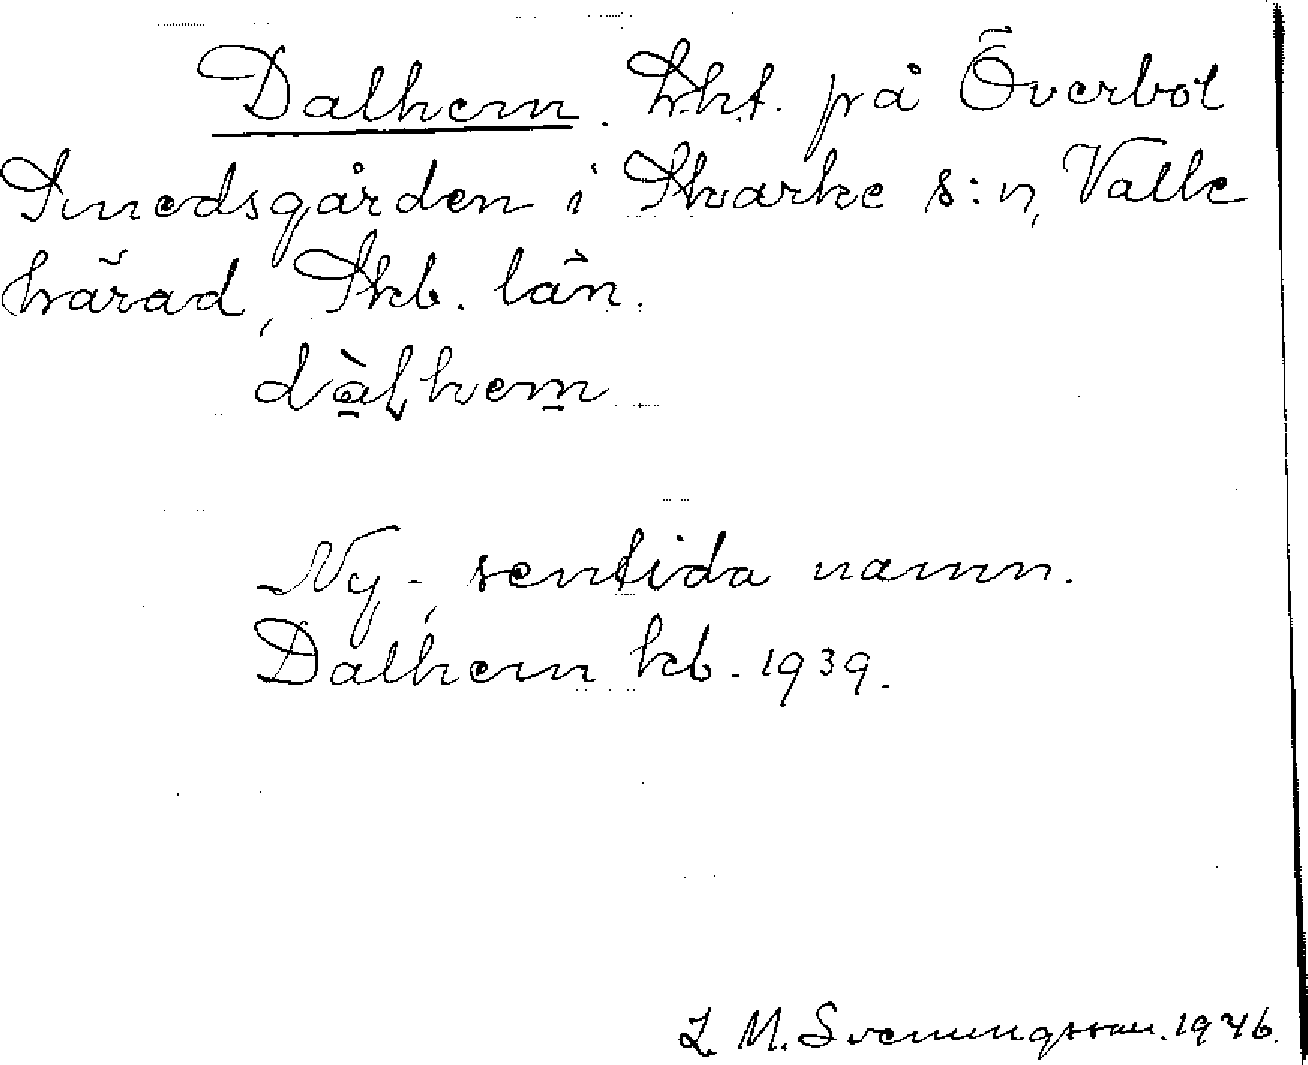 Dalhem. Lht. på Överbol
Smedsgården i Skarke s:n, Valle
härad, Skb. län.
dàlhem
Ny-, sentida namn.
Dalhem kb. 1939.
L. M. Svenungsson. 1946.